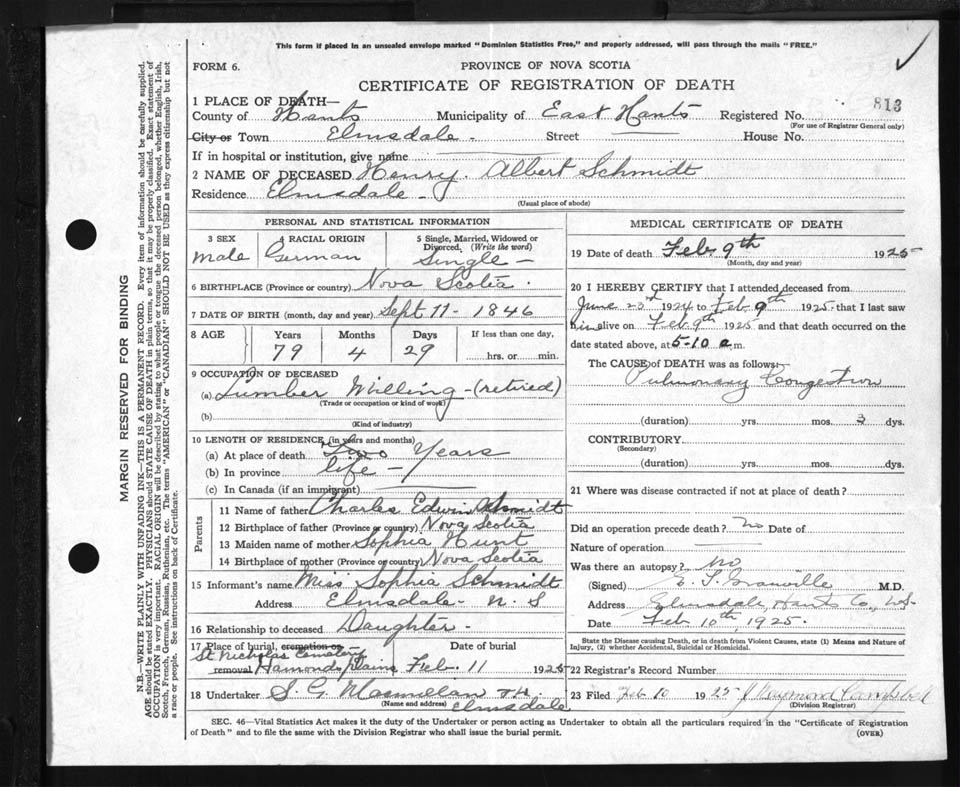 This form if placed in an unsealed envelope marked "Dominion Statistics Free," and properly addressed, will pass through the mails "FREE."
FORM 6.
PROVINCE OF NOVA SCOTIA
CERTIFICATE OF REGISTRATION OF DEATH
1 PLACE OF DEATH—
County of Hants Municipality of East Hants Registered No. 813
(For use of Registrar General only)
City or Town Elmsdale. Street House No.
If in hospital or institution, give name
2 NAME OF DECEASED Henry. Albert Schmidt
Residence Elmsdale
(Usual place of abode)
PERSONAL AND STATISTICAL INFORMATION
3 SEX
male
4 RACIAL ORIGIN
German
5 Single, Married, Widowed or
Divorced, (Write the word)
Single
6 BIRTHPLACE (Province or country) Nova Scotia
7 DATE OF BIRTH (month, day and year) Sept 11 - 1846
8 AGE Years Months Days If less than one day,
79 4 29 hrs. or min.
9 OCCUPATION OF DECEASED
(a) Lumber Milling - (retired)
(Trade or occupation or kind of work)
(b)
(Kind of industry)
10 LENGTH OF RESIDENCE (in years and months)
(a) At place of death Two Years
(b) In province life
(c) In Canada (if an immigrant)
Parents
11 Name of father Charles Edwin Schmidt
12 Birthplace of father (Province or country) Nova Scotia
13 Maiden name of mother Sophia Hunt
14 Birthplace of mother (Province or country) Nova Scotia
15 Informant's name Miss Sophia Schmidt
Address Elmsdale - N. S
16 Relationship to deceased Daughter
17 Place of burial, cremation or Date of burial
St Nicholas Cemetery
removal Hamonds Plains Feb. 11 1925
18 Undertaker S. G. Macmillan
(Name and address) Elmsdale
MEDICAL CERTIFICATE OF DEATH
19 Date of death Feb. 9th 1925
(Month, day and year)
20 I HEREBY CERTIFY that I attended deceased from
June 23rd 1924 to Feb 9th 1925 that I last saw
him alive on Feb 9th 1925 and that death occurred on the
date stated above, at 5-10 a.m.
The CAUSE OF DEATH was as follows:
Pulmonary Congestion
(duration) yrs. mos. 3 dys.
CONTRIBUTORY
(Secondary)
(duration) yrs. mos. dys.
21 Where was disease contracted if not at place of death?
Did an operation precede death? no Date of
Nature of operation
Was there an autopsy? no
(Signed) Granville M.D.
Address Elmsdale, Hants Co., N.S.
Date Feb 10th, 1925.
State the Disease causing Death, or in death from Violent Causes, state (1) Means and Nature of
Injury, (2) whether Accidental, Suicidal or Homicidal.
22 Registrar's Record Number
23 Filed Feb 10 1925 J Raymond Campbell
(Division Registrar)
SEC. 46—Vital Statistics Act makes it the duty of the Undertaker or person acting as Undertaker to obtain all the particulars required in the "Certificate of Registration
of Death" and to file the same with the Division Registrar who shall issue the burial permit. (OVER)
MARGIN RESERVED FOR BINDING
N.B.—WRITE PLAINLY WITH UNFADING INK—THIS IS A PERMANENT RECORD. Every item of information should be carefully supplied.
AGE should be stated EXACTLY. PHYSICIANS should STATE CAUSE OF DEATH in plain terms, so that it may be properly classified. Exact statement of
OCCUPATION is very important. RACIAL ORIGIN will be described by stating to what people or tongue the deceased person belonged, whether English, Irish,
Scotch, French, German, Russian, Ruthenian, etc. The terms "AMERICAN" or "CANADIAN" SHOULD NOT BE USED as they express citizenship but not
a race or people. See instructions on back of Certificate.